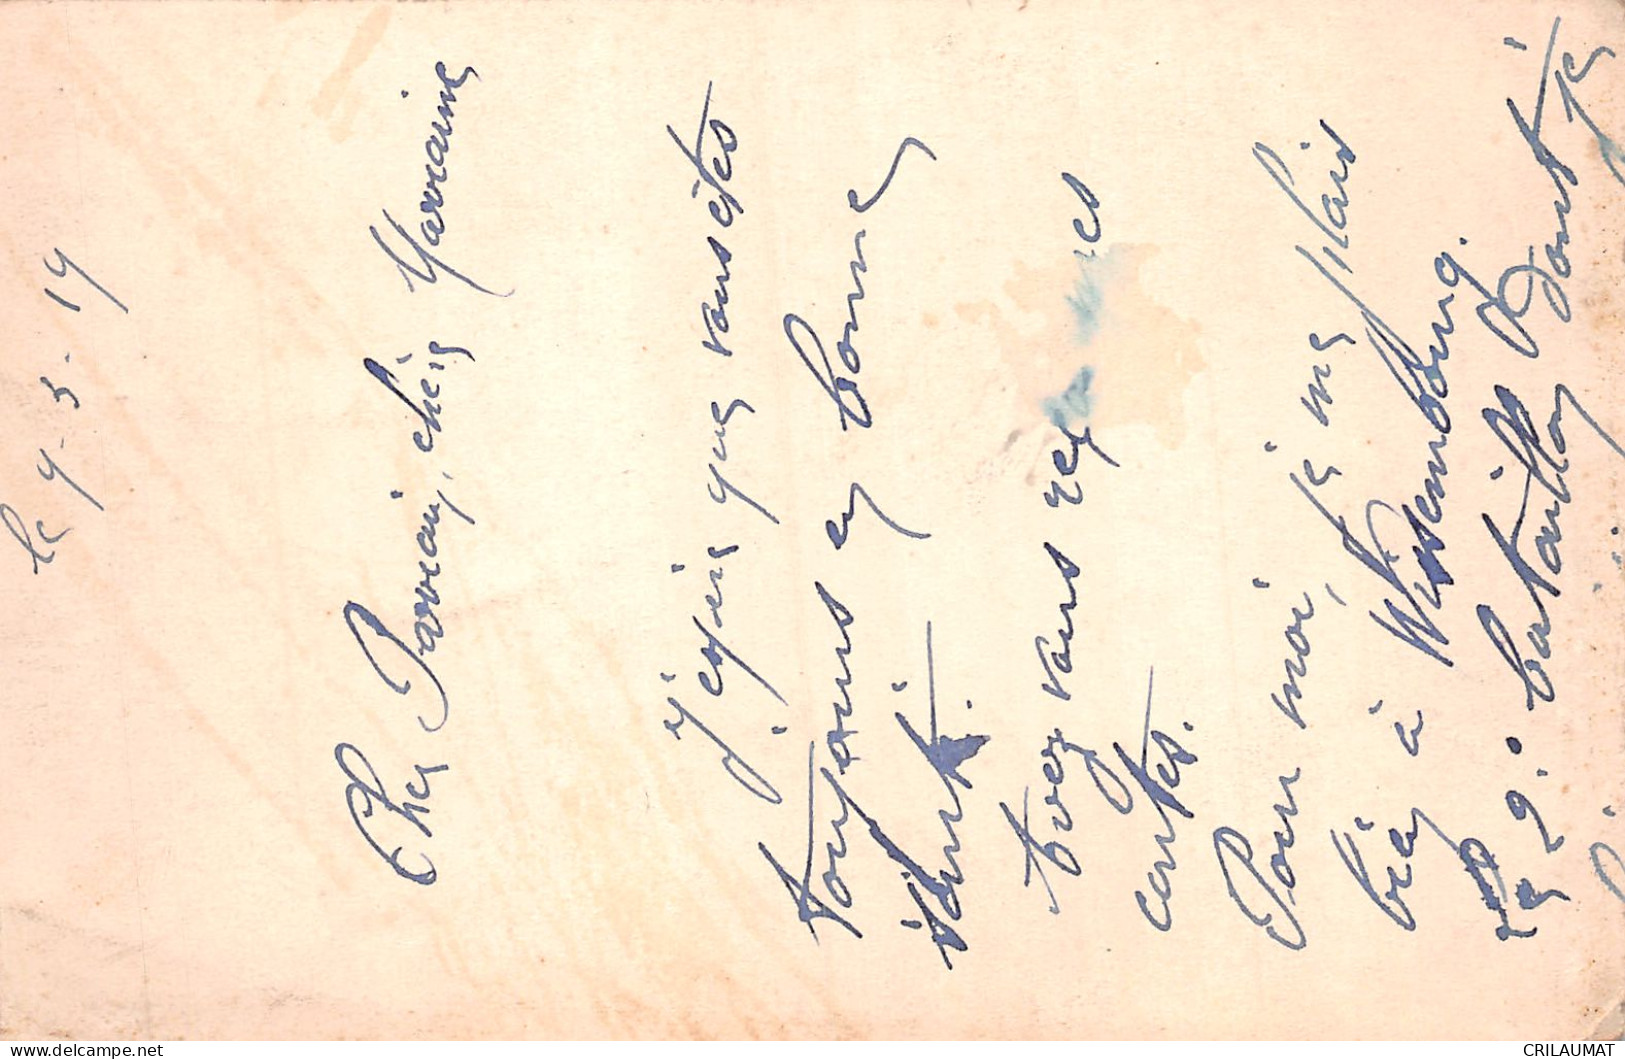 le 9-3-19
Cher Parrain, chère Marraine
J'espère que vous êtes
toujours en bonne
santé.
Avez vous reçu mes
cartes.
Pour moi, je me plais
bien à Wissembourg.
Le 2e bataillon dont je
www.delcampe.net
CRILAUMAT